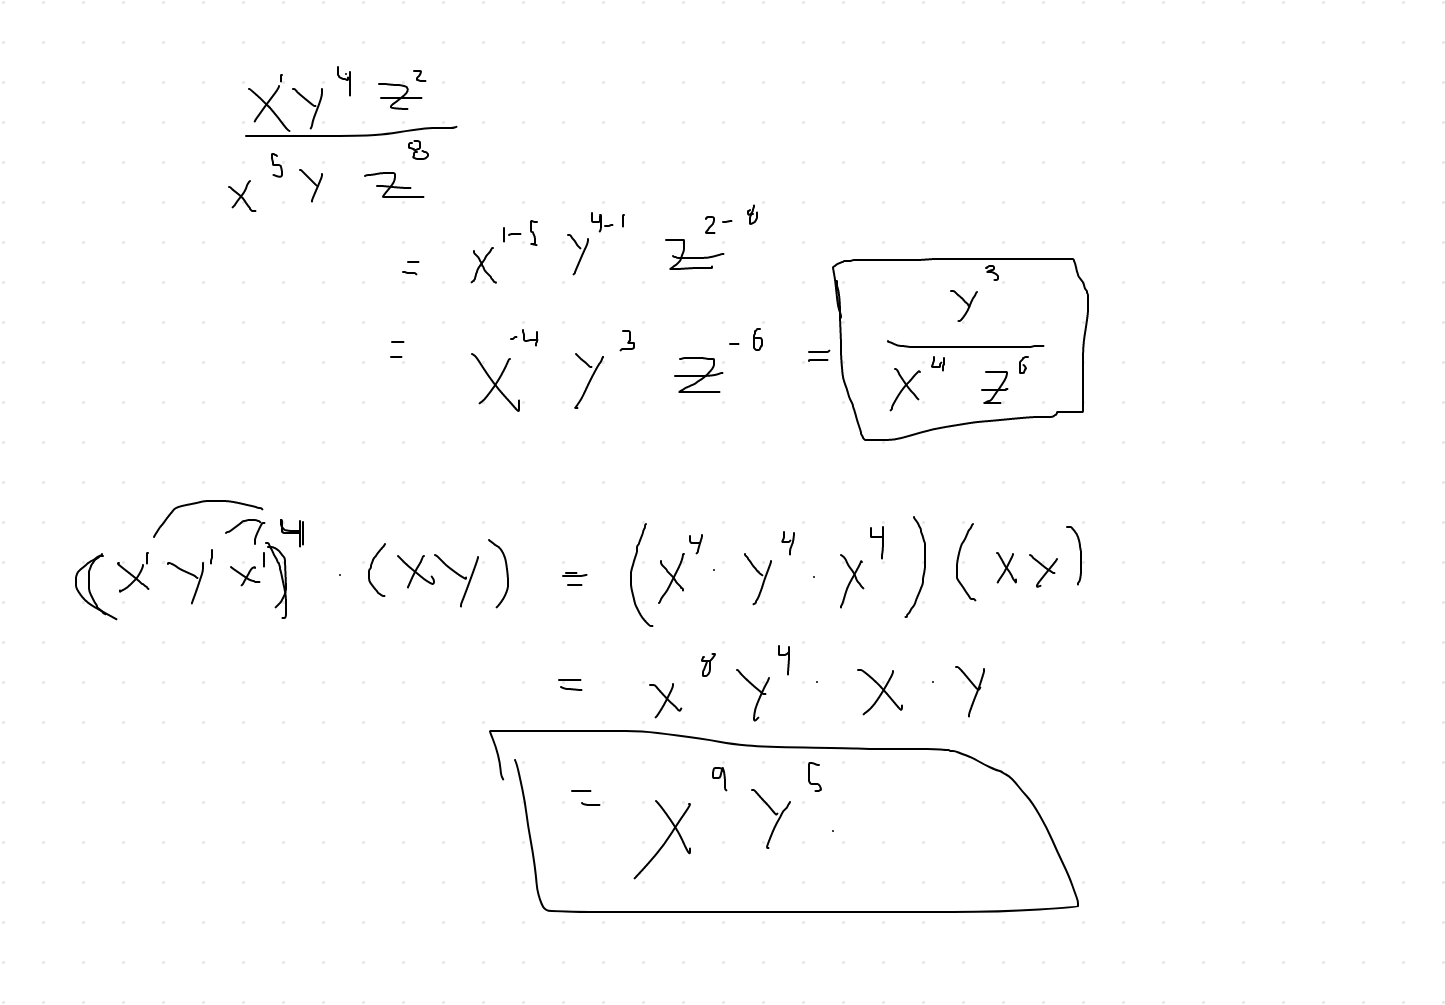 X¹Y⁴Z²
x⁵Y Z⁸
= X¹⁻⁵ Y⁴⁻¹ Z²⁻⁸
= X⁻⁴ Y³ Z⁻⁶ = Y³ / X⁴ Z⁶
((X¹Y¹X¹)⁴ · (XY) = (X⁴ · Y⁴ · X⁴)(XY)
= X⁸Y⁴ · X · Y
= X⁹Y⁵